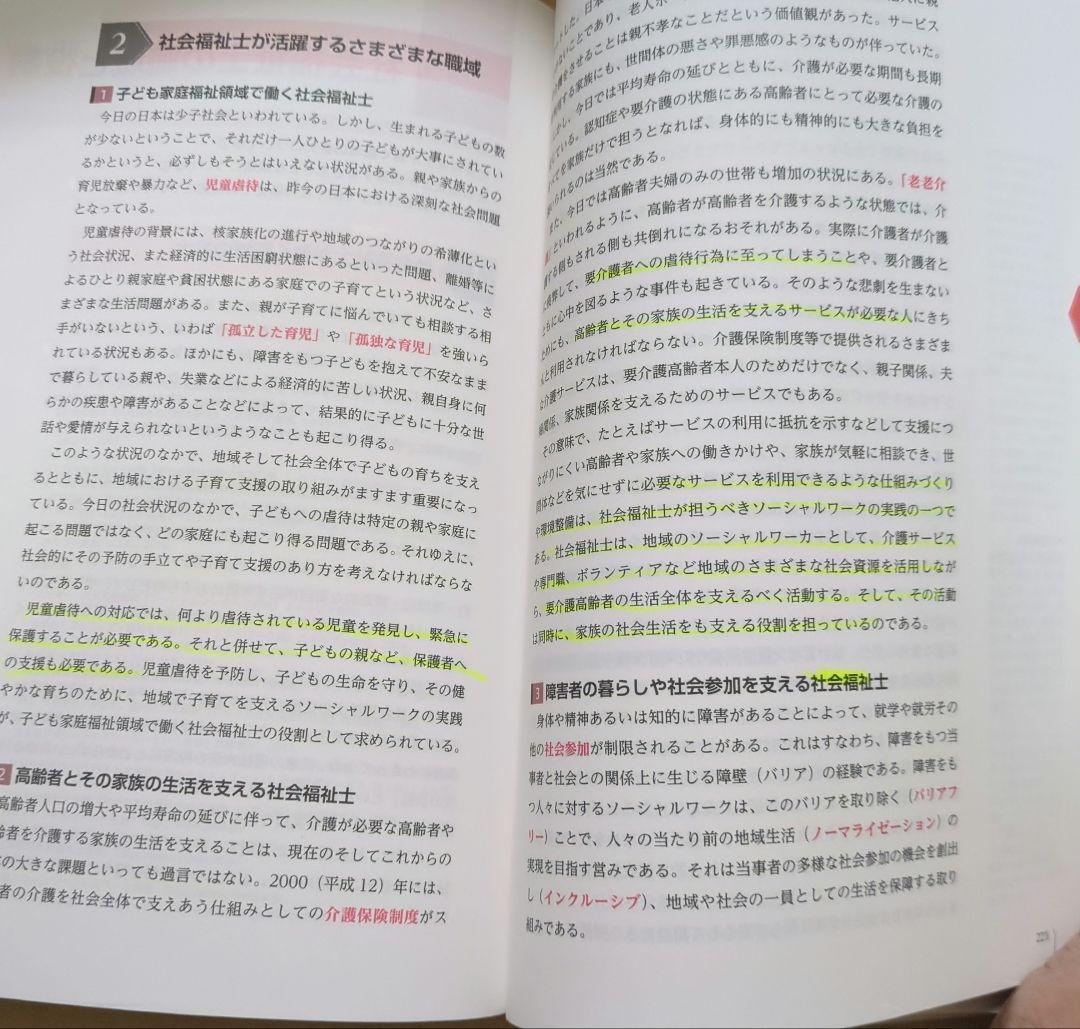 2 社会福祉士が活躍するさまざまな職域
1 子ども家庭福祉領域で働く社会福祉士
今日の日本は少子社会といわれている。しかし、生まれる子どもの数
が少ないということで、それだけ一人ひとりの子どもが大事にされてい
るかというと、必ずしもそうとはいえない状況がある。親や家族からの
育児放棄や暴力など、児童虐待は、昨今の日本における深刻な社会問題
となっている。
児童虐待の背景には、核家族化の進行や地域のつながりの希薄化とい
う社会状況、また経済的に生活困窮状態にあるといった問題、離婚等に
よるひとり親家庭や貧困状態にある家庭での子育てという状況など、さ
まざまな生活問題がある。また、親が子育てに悩んでいても相談する相
手がいないという、いわば「孤立した育児」や「孤独な育児」を強いら
れている状況もある。ほかにも、障害をもつ子どもを抱えて不安なまま
で暮らしている親や、失業などによる経済的に苦しい状況、親自身に何
らかの疾患や障害があることなどによって、結果的に子どもに十分な世
話や愛情が与えられないというようなことも起こり得る。
このような状況のなかで、地域そして社会全体で子どもの育ちを支え
るとともに、地域における子育て支援の取り組みがますます重要になっ
ている。今日の社会状況のなかで、子どもへの虐待は特定の親や家庭に
起こる問題ではなく、どの家庭にも起こり得る問題である。それゆえに、
社会的にその予防の手立てや子育て支援のあり方を考えなければならな
いのである。
児童虐待への対応では、何より虐待されている児童を発見し、緊急に
保護することが必要である。それと併せて、子どもの親など、保護者へ
の支援も必要である。児童虐待を予防し、子どもの生命を守り、その健
やかな育ちのために、地域で子育てを支えるソーシャルワークの実践
が、子ども家庭福祉領域で働く社会福祉士の役割として求められている。
2 高齢者とその家族の生活を支える社会福祉士
高齢者人口の増大や平均寿命の延びに伴って、介護が必要な高齢者や
齢者を介護する家族の生活を支えることは、現在のそしてこれからの
の大きな課題といっても過言ではない。2000（平成12）年には、
者の介護を社会全体で支えあう仕組みとしての介護保険制度がス
した。日本
ないことであり、老人ホ
をさせることは親不孝なことだという価値観があった。サービス
する家族にも、世間体の悪さや罪悪感のようなものが伴っていた。
し、今日では平均寿命の延びとともに、介護が必要な期間も長期
ている。認知症や要介護の状態にある高齢者にとって必要な介護の
を家族だけで担うとなれば、身体的にも精神的にも大きな負担を
いられるのは当然である。
た、今日では高齢者夫婦のみの世帯も増加の状況にある。「老老介
といわれるように、高齢者が高齢者を介護するような状態では、介
する側もされる側も共倒れになるおそれがある。実際に介護者が介護
して、要介護者への虐待行為に至ってしまうことや、要介護者と
ともに心中を図るような事件も起きている。そのような悲劇を生まない
ためにも、高齢者とその家族の生活を支えるサービスが必要な人にきち
んと利用されなければならない。介護保険制度等で提供されるさまざま
な介護サービスは、要介護高齢者本人のためだけでなく、親子関係、夫
婦関係、家族関係を支えるためのサービスでもある。
その意味で、たとえばサービスの利用に抵抗を示すなどして支援につ
ながりにくい高齢者や家族への働きかけや、家族が気軽に相談でき、世
間体などを気にせずに必要なサービスを利用できるような仕組みづくり
や環境整備は、社会福祉士が担うべきソーシャルワークの実践の一つで
ある。社会福祉士は、地域のソーシャルワーカーとして、介護サービス
や専門職、ボランティアなど地域のさまざまな社会資源を活用しなが
ら、要介護高齢者の生活全体を支えるべく活動する。そして、その活動
は同時に、家族の社会生活をも支える役割を担っているのである。
3 障害者の暮らしや社会参加を支える社会福祉士
身体や精神あるいは知的に障害があることによって、就学や就労その
他の社会参加が制限されることがある。これはすなわち、障害をもつ当
事者と社会との関係上に生じる障壁（バリア）の経験である。障害をも
つ人々に対するソーシャルワークは、このバリアを取り除く（バリアフ
リー）ことで、人々の当たり前の地域生活（ノーマライゼーション）の
実現を目指す営みである。それは当事者の多様な社会参加の機会を創出
し（インクルーシブ）、地域や社会の一員としての生活を保障する取り
組みである。